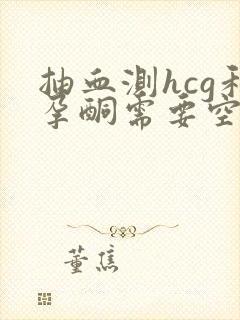 抽血测hcg和
孕酮需要空
董焦